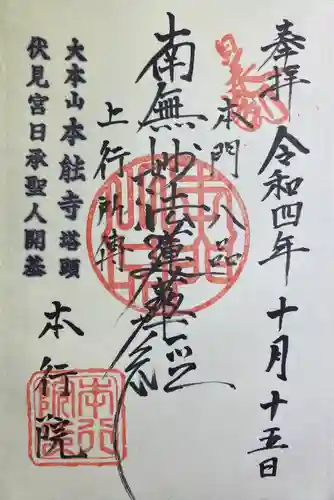 奉拝
令和四年十月十五日
本門八品
南無妙法蓮華経
上行所傳
大本山本能寺塔頭
伏見宮日承聖人開基
本行院
本行院